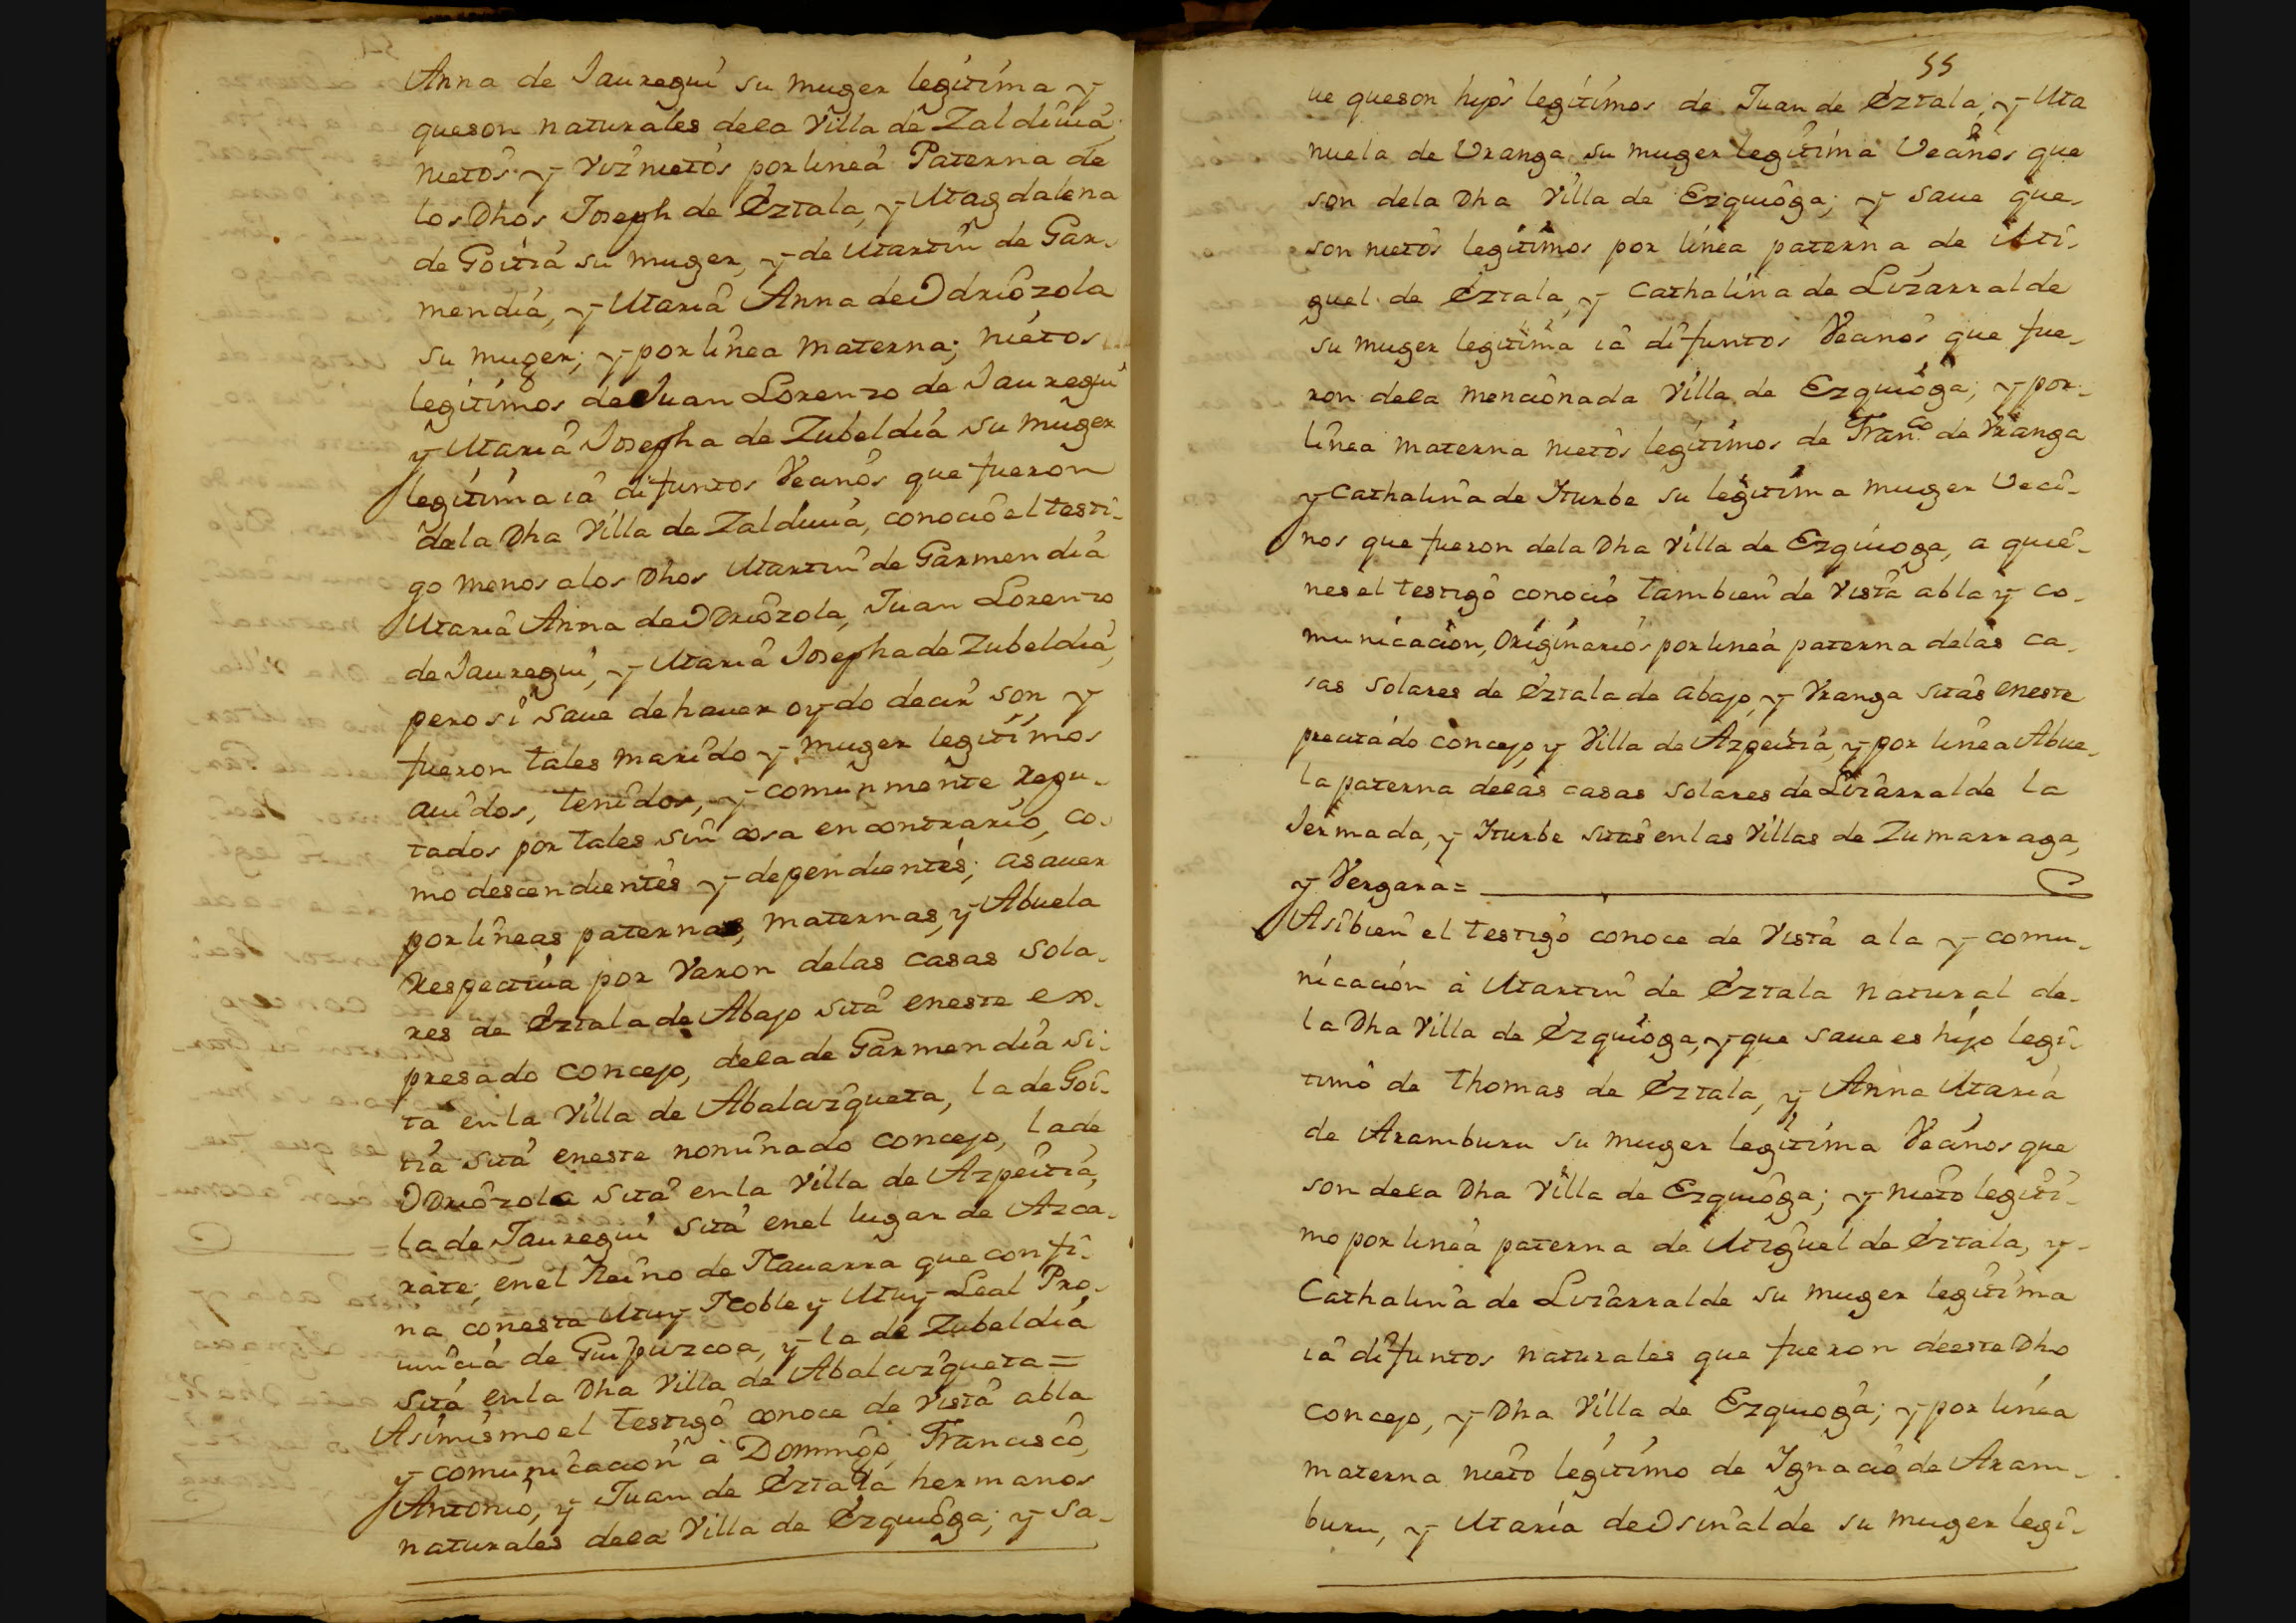 Anna de Jauregui su muger legitima y
queson naturales dela Villa de Zaldiuia,
nietos y viznietos por linea Paterna de
los Dhos Joseph de Eztala, y Magdalena
de Goitia su muger, y de Martin de Gar-
mendia, y Maria Anna de Odriozola
su muger; y por linea materna; nietos
legitimos de Juan Lorenzo de Jauregui
y Maria Josepha de Zubeldia su muger
legitima ia difuntos Vecinos que fueron
dela Dha Villa de Zaldiuia, conocio el testi-
go menos alos Dhos Martin de Garmendia
Maria Anna de Odriozola, Juan Lorenzo
de Jauregui, y Maria Josepha de Zubeldia,
pero si saue de hauer oydo decir son y
fueron tales marido y muger legitimos
auidos, tenidos, y comunmente repu-
tados por tales sin cosa en contrario, co-
mo descendientes y dependientes; asauer
por lineas paternas, maternas, y Abuela
respectiua por Varon delas casas sola-
res de Eztala de Abajo sita eneste ex-
presado concejo, dela de Garmendia si-
ta en la Villa de Abalcizqueta, la de Goi-
tia sita eneste nominado concejo, la de
Odriozola sita en la Villa de Azpeitia,
la de Jauregui sita enel lugar de Azca-
rate, enel Reino de Nauarra que confi-
na conesta Muy Noble y Muy Leal Pro-
uincia de Guipuzcoa, y la de Zubeldia
sita en la Dha Villa de Abalcizqueta =
Asimismo el testigo conoce de vista abla
y comunicacion à Domingo, Francisco,
Antonio, y Juan de Eztala hermanos
naturales dela Villa de Ezquioga; y sa-
55
ue queson hijos legitimos de Juan de Eztala, y Ma
nuela de Vranga su muger legitima Vecinos que
son dela Dha Villa de Ezquioga; y saue que
son nietos legitimos por linea paterna de Mi-
guel de Eztala, y Cathalina de Lizarralde
su muger legitima ia difuntos Vecinos que fue-
ron dela mencionada Villa de Ezquioga; y por
linea materna nietos legitimos de Franco de Vranga
y Cathalina de Yturbe su legitima muger Veci-
nos que fueron dela Dha Villa de Ezquioga, a quie-
nes el testigo conocio tambien de vista abla y co-
municacion, Originarios por linea paterna delas ca-
sas solares de Eztala de abajo, y Vranga sitas eneste
precitado concejo, y Villa de Azpeitia, y por linea Abue-
la paterna delas casas solares de Lizarralde la
Jermada, y Yturbe sitas en las Villas de Zumarraga,
y Vergara =
Asibien el testigo conoce de Vista ala y comu-
nicacion à Martin de Eztala natural de-
la Dha Villa de Ezquioga, y que saue es hijo legi-
timo de Thomas de Eztala, y Anna Maria
de Aramburu su muger legitima Vecinos que
son dela Dha Villa de Ezquioga; y nieto legiti-
mo por linea paterna de Miguel de Eztala, y
Cathalina de Lizarralde su muger legitima
ia difuntos naturales que fueron deeste Dho
concejo, y Dha Villa de Ezquioga; y por linea
materna nieto legitimo de Ygnacio de Aram-
buru, y Maria de Osinalde su muger legi-